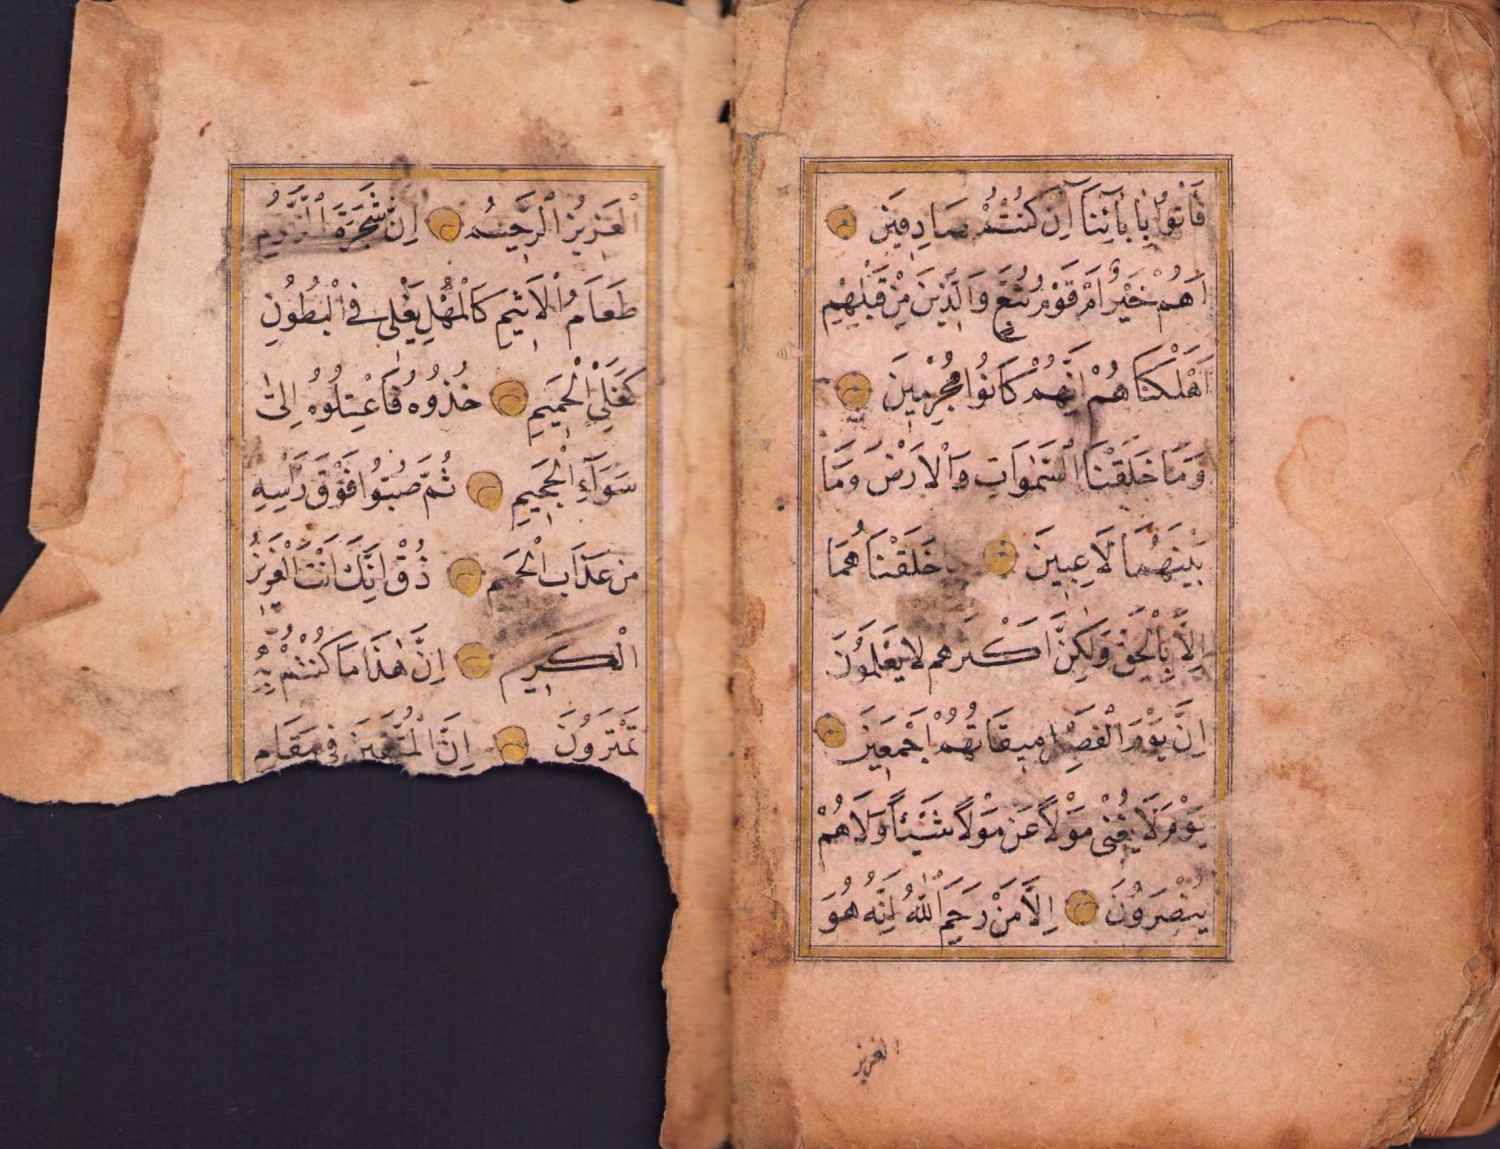 فَأْتُوا بِاٰبَآئِنَآ اِنْ كُنْتُمْ صَادِقِينَ
اَهُمْ خَيْرٌ اَمْ قَوْمُ تُبَّعٍ وَالَّذِينَ مِنْ قَبْلِهِمْ
اَهْلَكْنَاهُمْ اِنَّهُمْ كَانُوا مُجْرِمِينَ
وَمَا خَلَقْنَا السَّمٰوَاتِ وَالْاَرْضَ وَمَا
بَيْنَهُمَا لَاعِبِينَ خَلَقْنَاهُمَا
اِلَّا بِالْحَقِّ وَلٰكِنَّ اَكْثَرَهُمْ لَا يَعْلَمُونَ
اِنَّ يَوْمَ الْفَصْلِ مِيقَاتُهُمْ اَجْمَعِينَ
يَوْمَ لَا يُغْنِى مَوْلًا عَنْ مَوْلًا شَيْئًا وَلَا هُمْ
يُنْصَرُونَ اِلَّا مَنْ رَحِمَ اللّٰهُ اِنَّهُ هُوَ
العزيز
الْعَزِيزُ الرَّحِيمُ اِنَّ شَجَرَةَ الزَّقُّومِ
طَعَامُ الْاَثِيمِ كَالْمُهْلِ يَغْلِى فِى الْبُطُونِ
كَغَلْىِ الْحَمِيمِ خُذُوهُ فَاعْتِلُوهُ اِلٰى
سَوَآءِ الْجَحِيمِ ثُمَّ صُبُّوا فَوْقَ رَاْسِهِ
مِنْ عَذَابِ الْحَمِيمِ ذُقْ اِنَّكَ اَنْتَ الْعَزِيزُ
الْكَرِيمُ اِنَّ هٰذَا مَا كُنْتُمْ بِهِ
تَمْتَرُونَ اِنَّ الْمُتَّقِينَ فِى مَقَامٍ